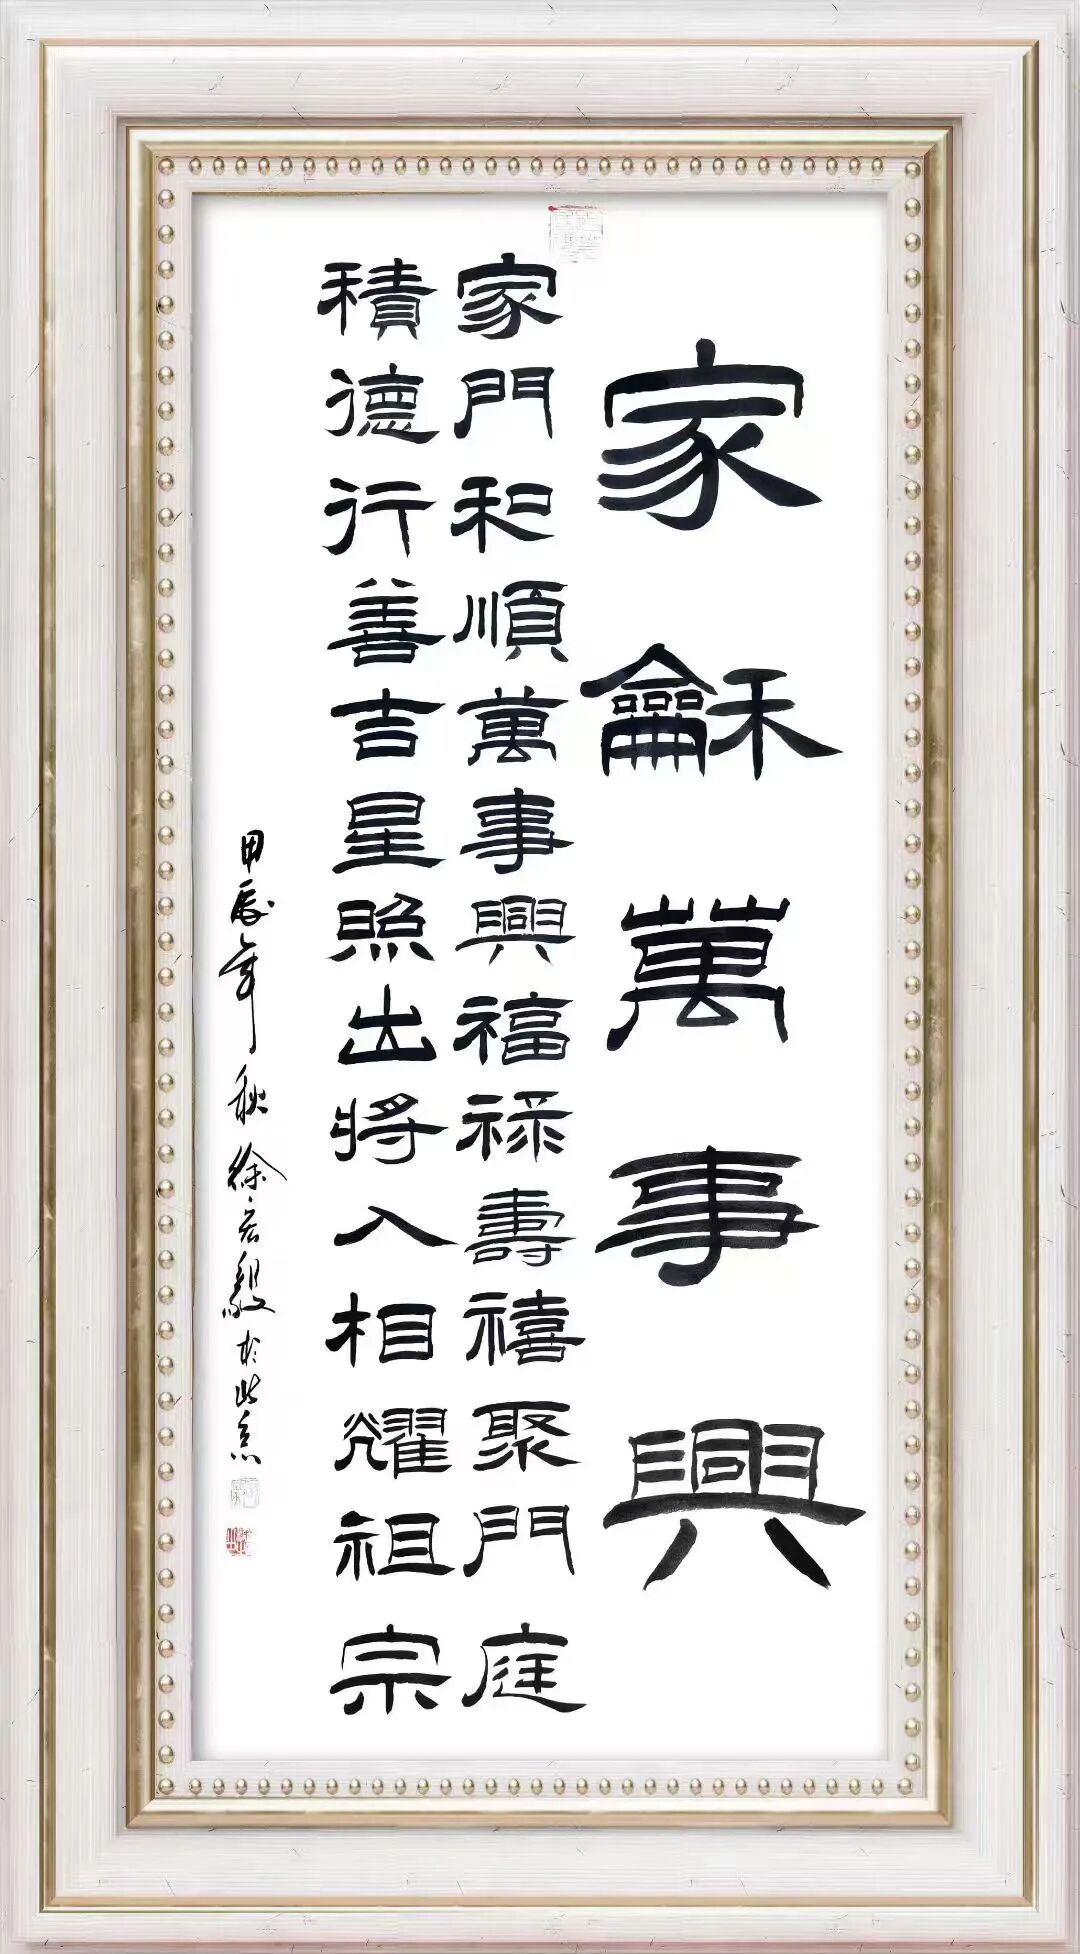 家龢萬事興
家門和順萬事興福禄壽禧聚門庭
積德行善吉星照出將入相耀祖宗
甲辰年秋徐宏毅於北京